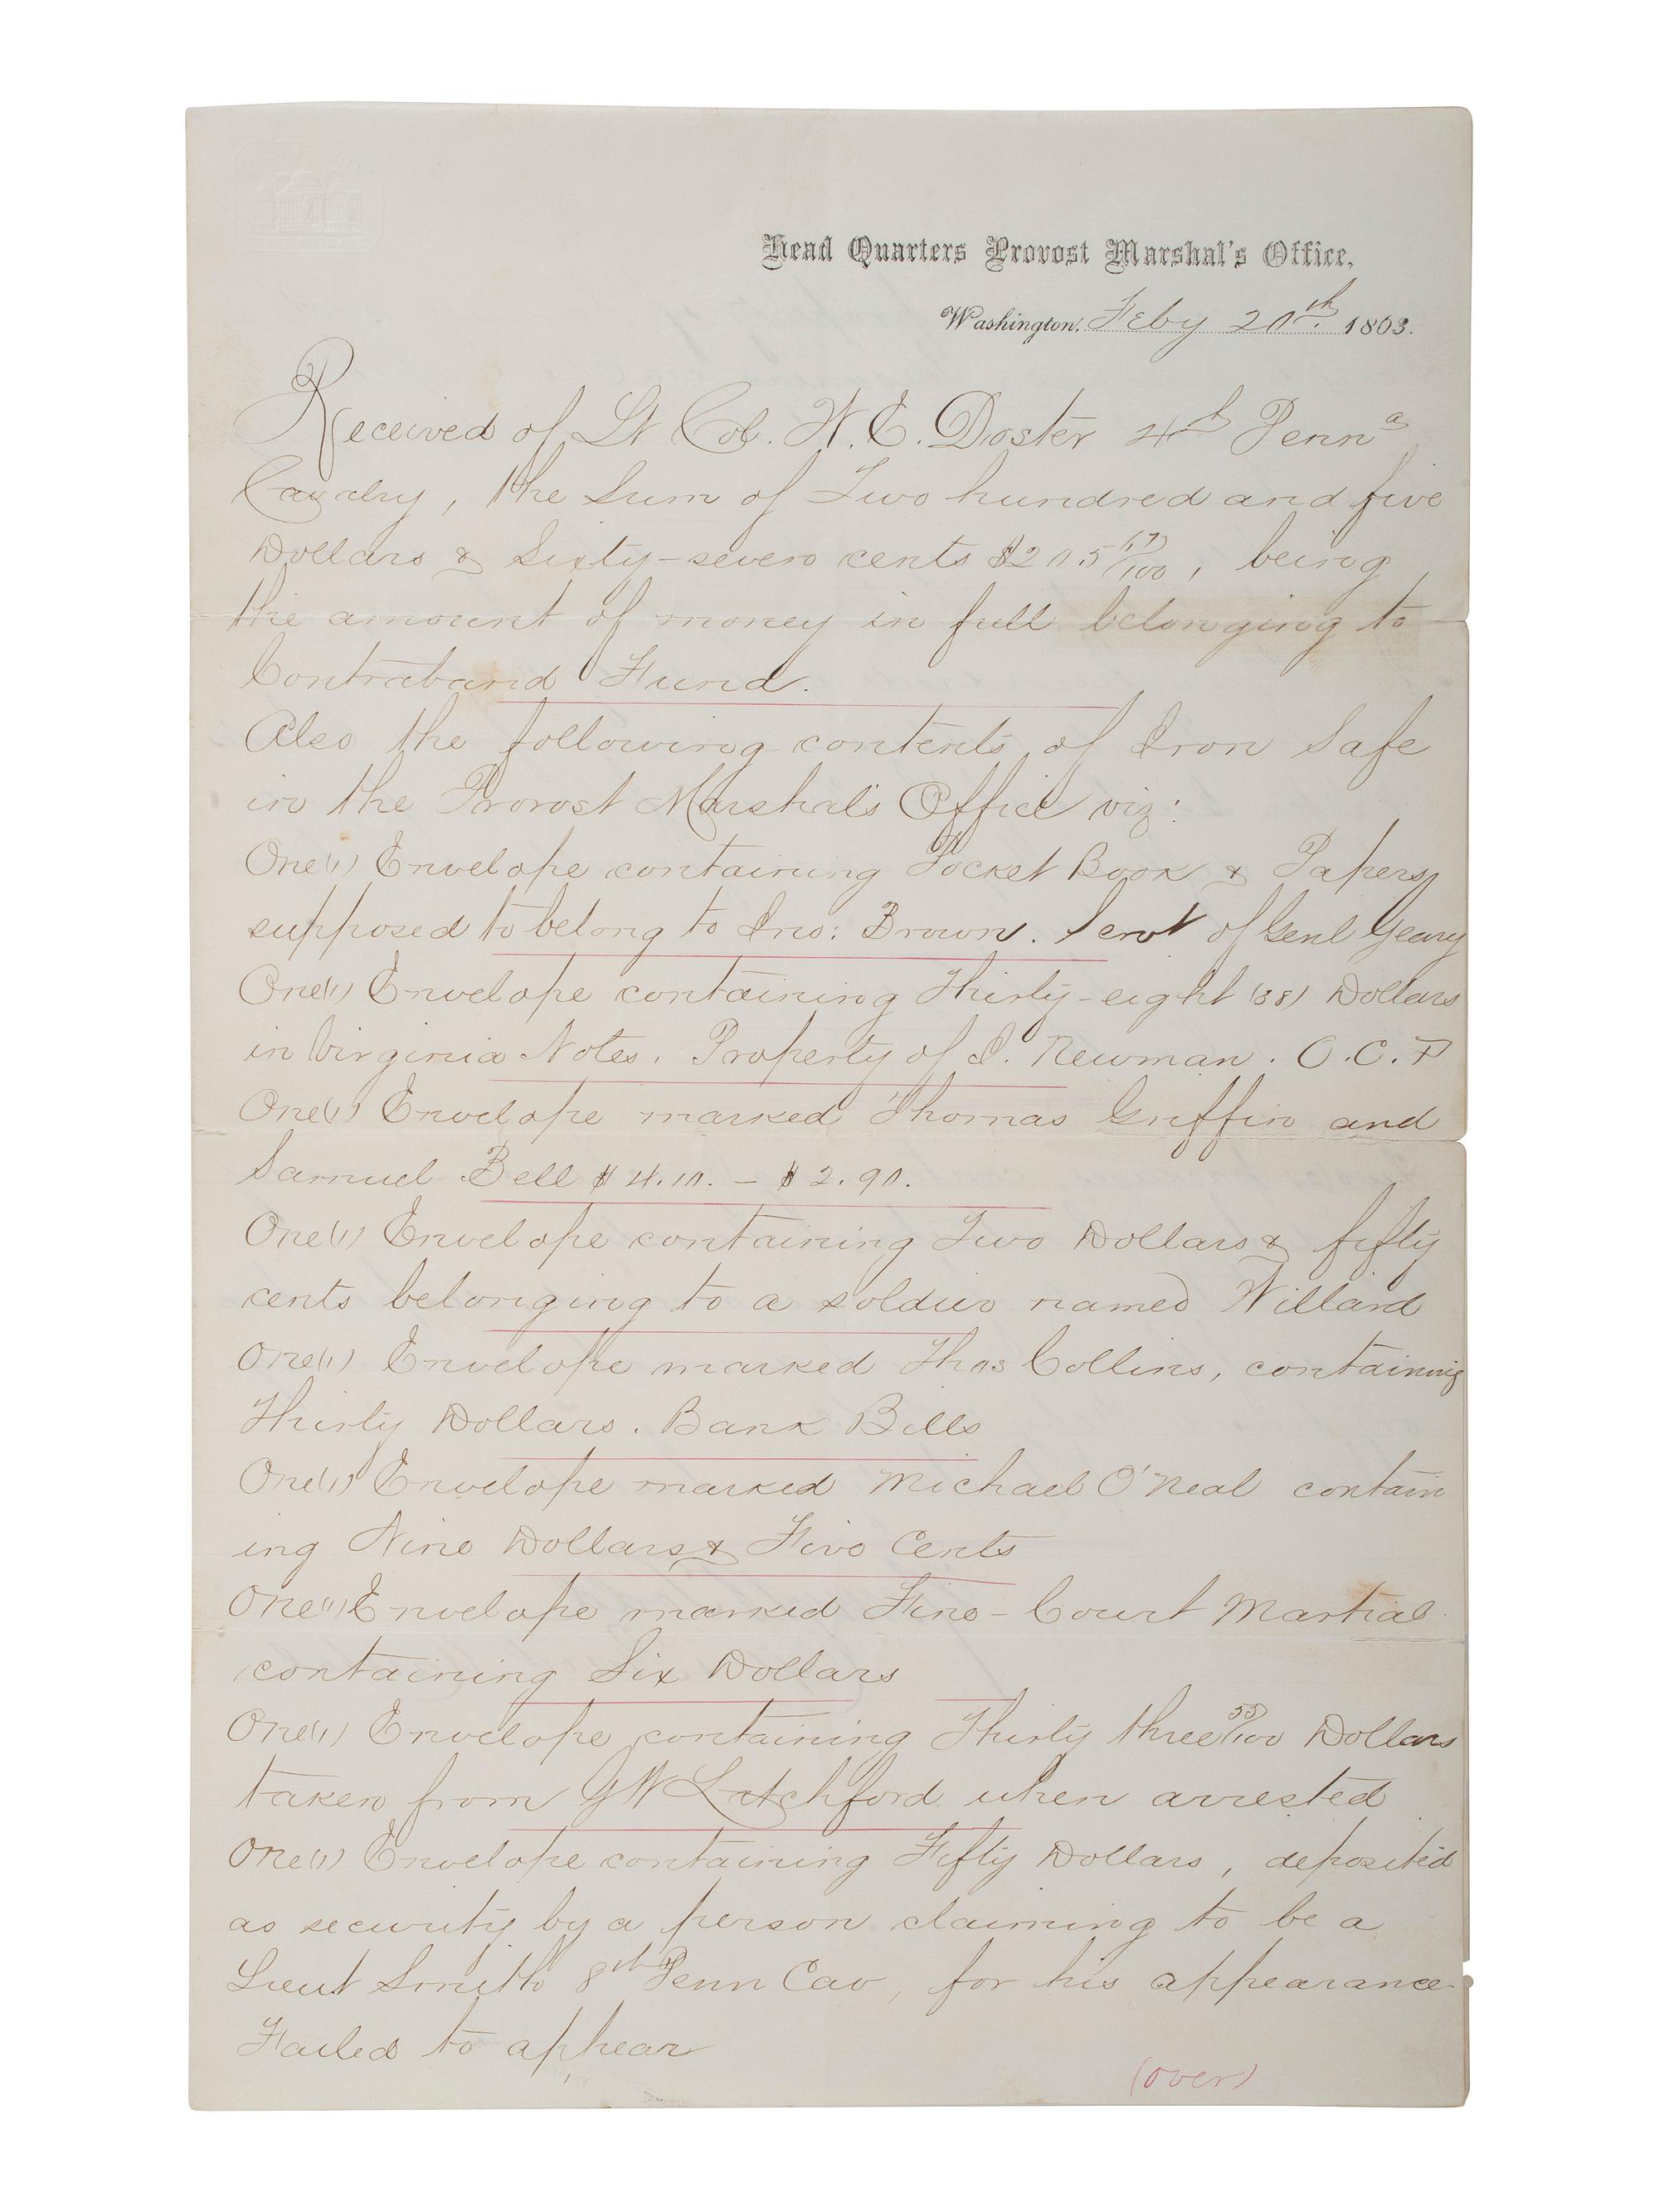 Head Quarters Provost Marshal's Office,
Washington, Feby 20th 1863.
Received of Lt Col. W. E. Doster 4th Penna
Cavalry, the Sum of Two hundred and five
Dollars & Sixty-seven cents $205 67/100, being
the amount of money in full belonging to
Contraband Fund.
Also the following contents of Iron Safe
in the Provost Marshal's Office viz:
One (1) Envelope containing Pocket Book & Papers
supposed to belong to Jno: Brown. Servt of Genl Geary
One (1) Envelope containing Thirty-eight (38) Dollars
in Virginia Notes. Property of J. Newman. O.C.P
One (1) Envelope marked Thomas Griffin and
Samuel Bell $4.10. - $2.90.
One (1) Envelope containing Two Dollars & fifty
cents belonging to a soldier named Willard
One (1) Envelope marked Thos Collins, containing
Thirty Dollars. Bank Bills
One (1) Envelope marked Michael O'Neal contain
ing Nine Dollars & Five Cents
One (1) Envelope marked Fine - Court Martial
containing Six Dollars
One (1) Envelope containing Thirty three 55/100 Dollars
taken from GW Latchford when arrested
One (1) Envelope containing Fifty Dollars, deposited
as security by a person claiming to be a
Lieut Smith 8th Penn Cav, for his appearance
Failed to appear
(over)